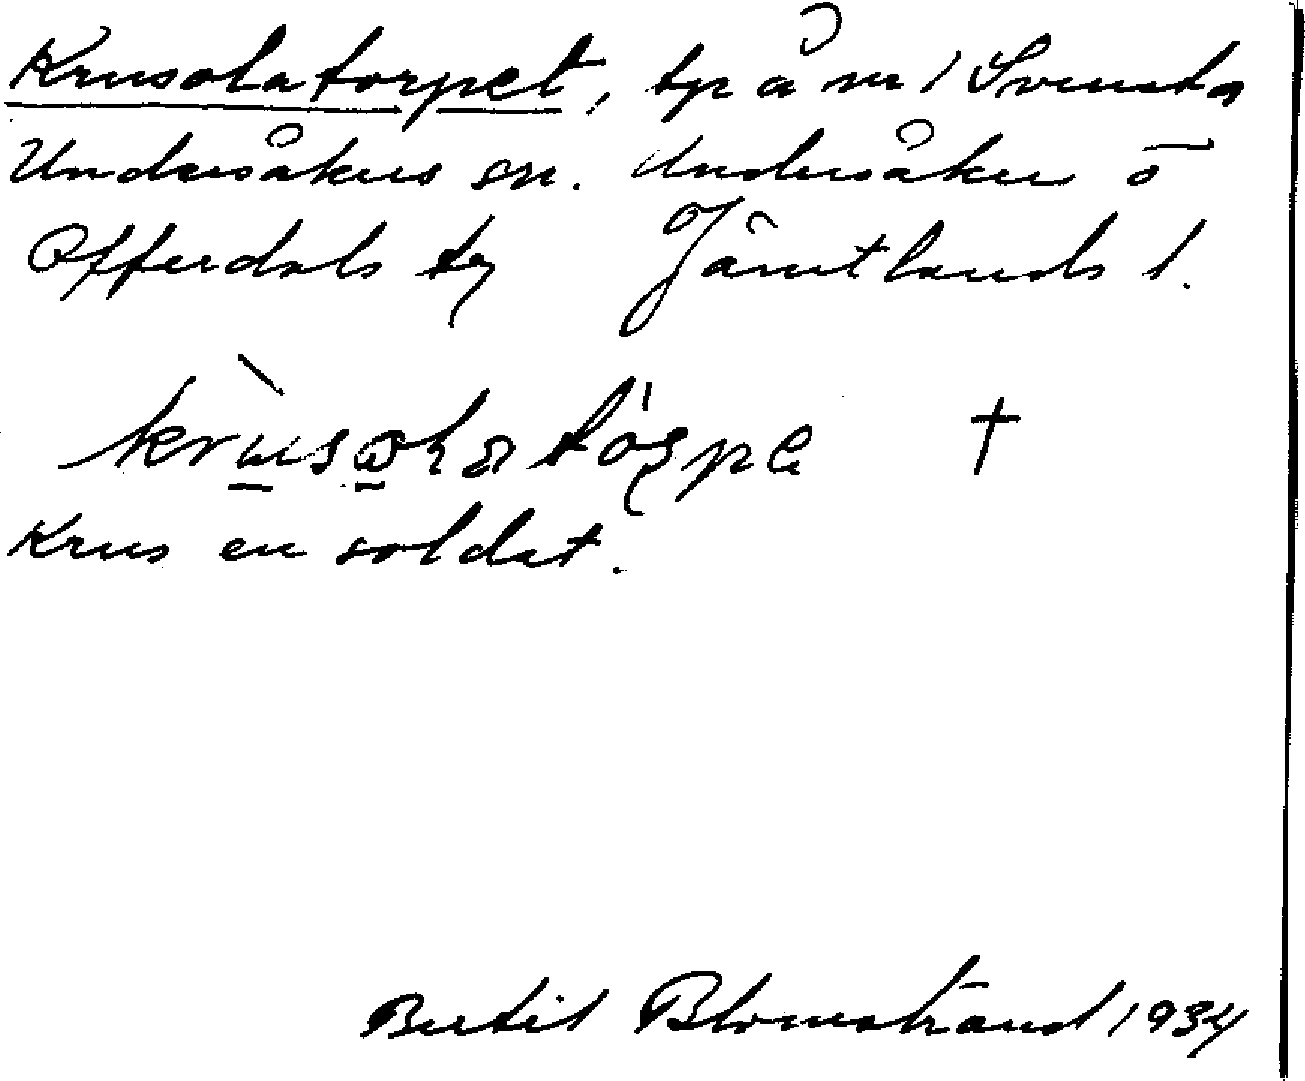 Krusolatorpet, tp å nr 1 Svensta
Undersåkers sn. Undersåker o
Offerdals tg Jämtlands l.
†
Krus en soldat.
Bertil Blomstrand 1934